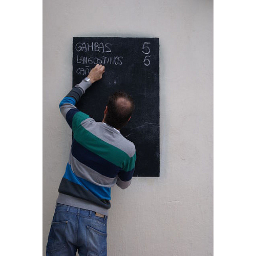 GAMBAS 5
LANGOSTINOS 5